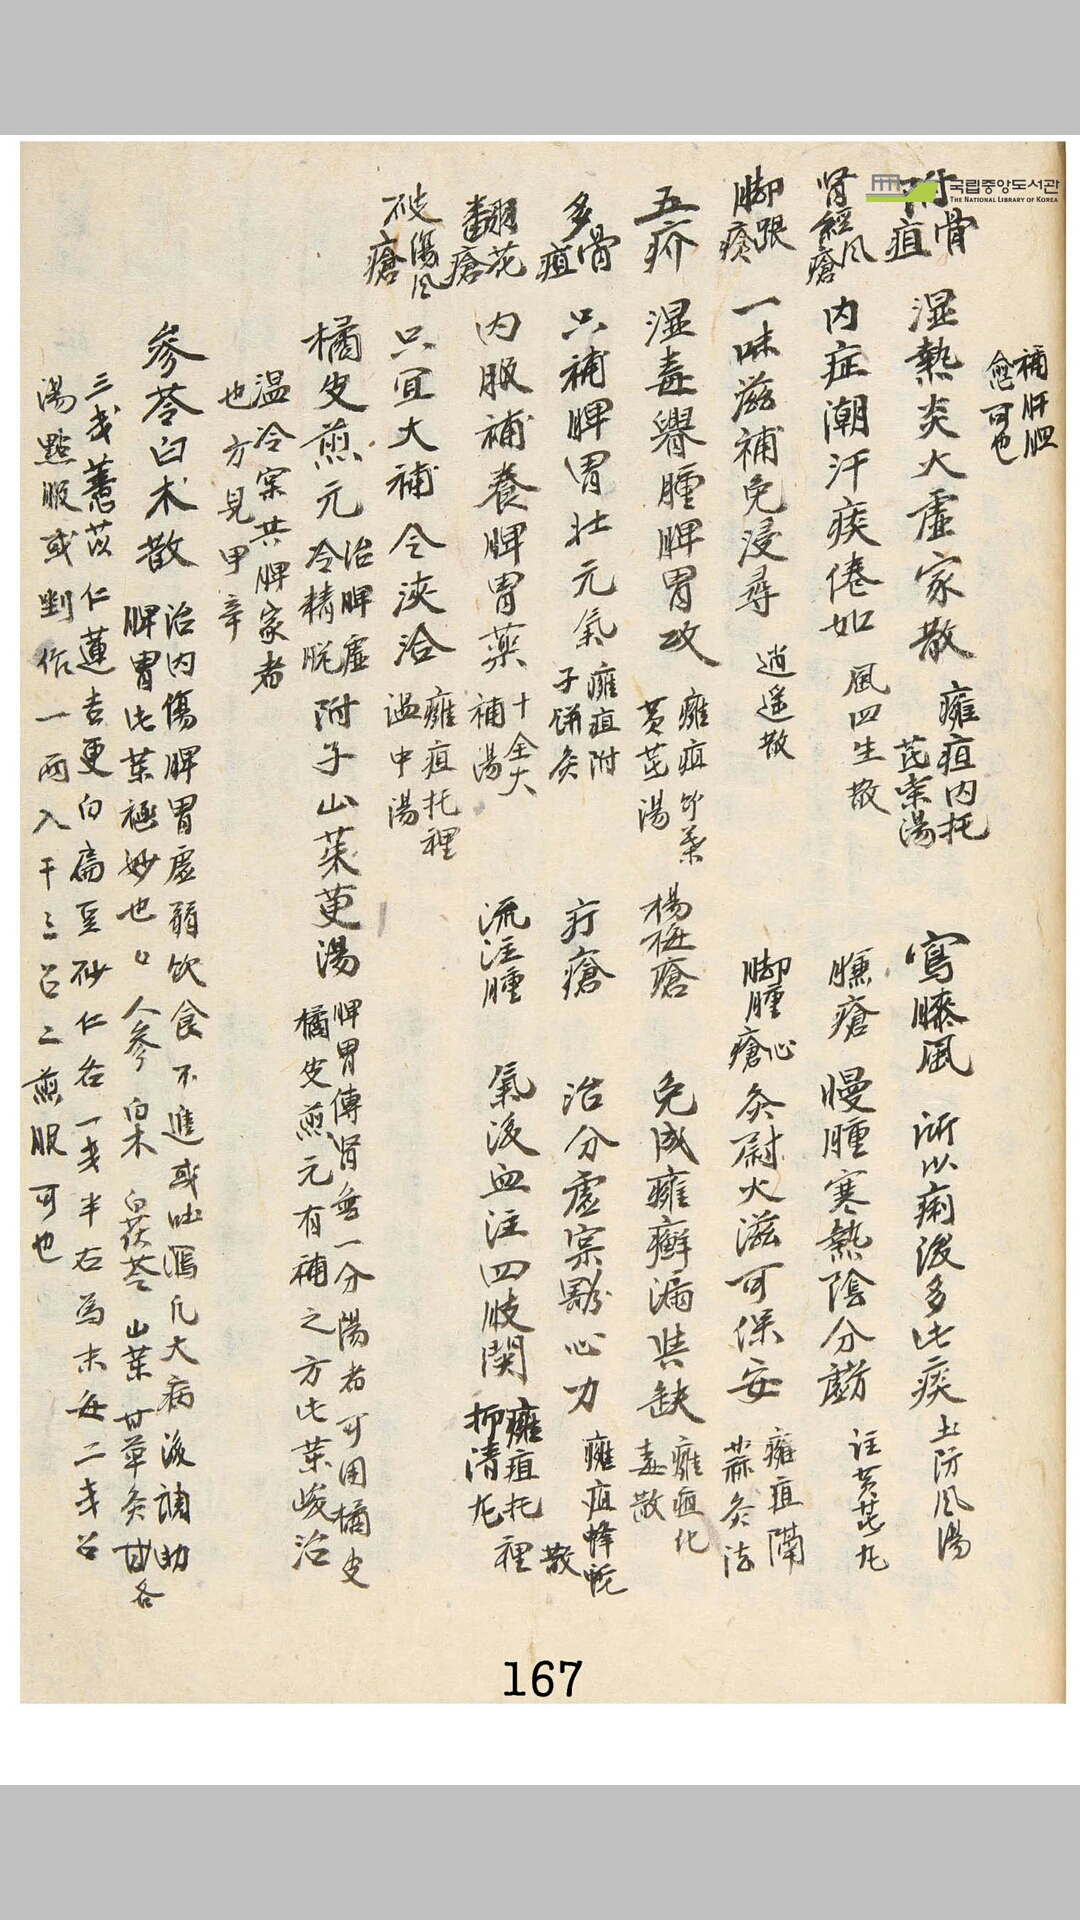 국립중앙도서관
THE NATIONAL LIBRARY OF KOREA
補肝胆
愈可也
附骨疽 湿熱炎大虛家散 癰疽内托芪柴湯 鶴膝風 所以痢後多此疾 大防风湯
肾經风瘡 内症潮汗疾倦如 風四生散 臁瘡 慢腫寒熱陰分 註黄芪丸
脚跟瘡 一味滋補免浸尋 逍遥散 脚腫心瘡 灸尉火滋可保安 癰疽隔蒜灸法
五疥 湿毒腫脾胃攻 癰疽黄芪湯 楊梅瘡 免成癰癬漏 缺 癰疽化毒散
多骨疽 只補脾胃壮元氣 癰疽附子餅灸 疔瘡 治分虛实 心力 癰疽蜂散
翻花瘡 内服補養脾胃藥 十全大補湯 流注腫 氣凝血注四肢関 癰疽托裡抑清丸
破傷风瘡 只宜大補令浹洽 癰疽托裡温中湯
橘皮煎元 治脾虛冷精脱 附子山茱萸湯 脾胃傳肾無一分陽者可用橘皮
橘皮煎元有補之方此葉峻治
温冷実共脾家者
也方見甲辛
參苓白术散 治内傷脾胃虛弱飲食不進或吐瀉凡大病後調助
脾胃此葉極妙也 人參 白术 白茯苓 山葉 甘草灸 各
三戔薏苡仁蓮吉更白扁豆砂仁各一戔半右為末每二戔召
湯點服或剉作一両入干三召二煎服可也
167